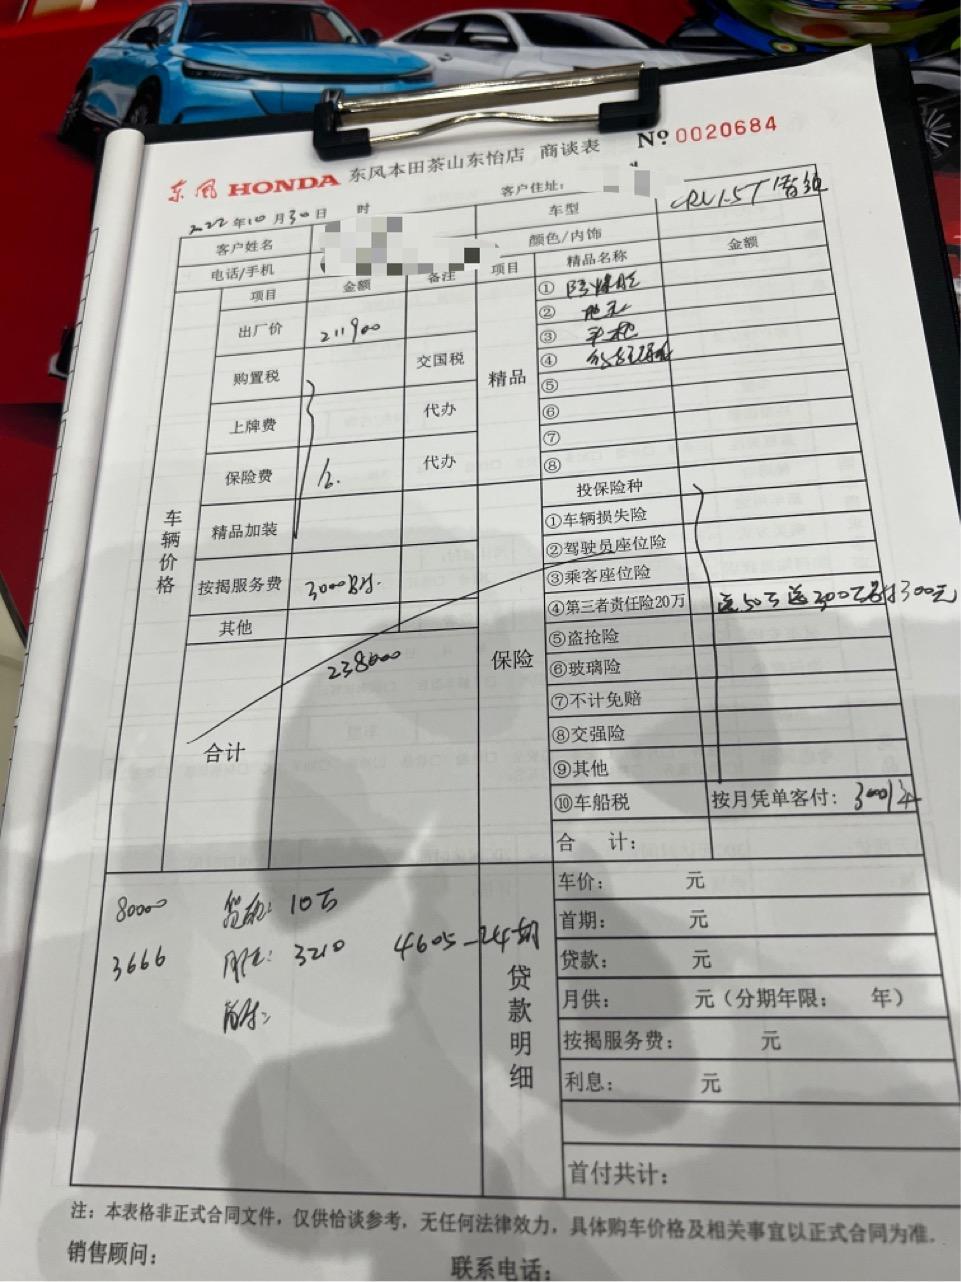 东风 HONDA 东风本田茶山东怡店 商谈表 № 0020684
2022年10月30日 时 客户住址:
客户姓名 车型 CRV1.5T
电话/手机 颜色/内饰
项目 金额 备注 项目 精品名称 金额
车辆价格
出厂价 211900
购置税 交国税
上牌费 代办
保险费 代办
精品加装
按揭服务费 3000
其他
合计 238000
精品
① 防爆膜
②
③
④
⑤
⑥
⑦
⑧
保险
投保险种
①车辆损失险
②驾驶员座位险
③乘客座位险
④第三者责任险20万 300元
⑤盗抢险
⑥玻璃险
⑦不计免赔
⑧交强险
⑨其他
⑩车船税 按月凭单客付:
合 计:
80000 10万
3666 3210 4605-24期
贷款明细
车价: 元
首期: 元
贷款: 元
月供: 元(分期年限: 年)
按揭服务费: 元
利息: 元
首付共计:
注:本表格非正式合同文件,仅供恰谈参考,无任何法律效力,具体购车价格及相关事宜以正式合同为准.
销售顾问: 联系电话: